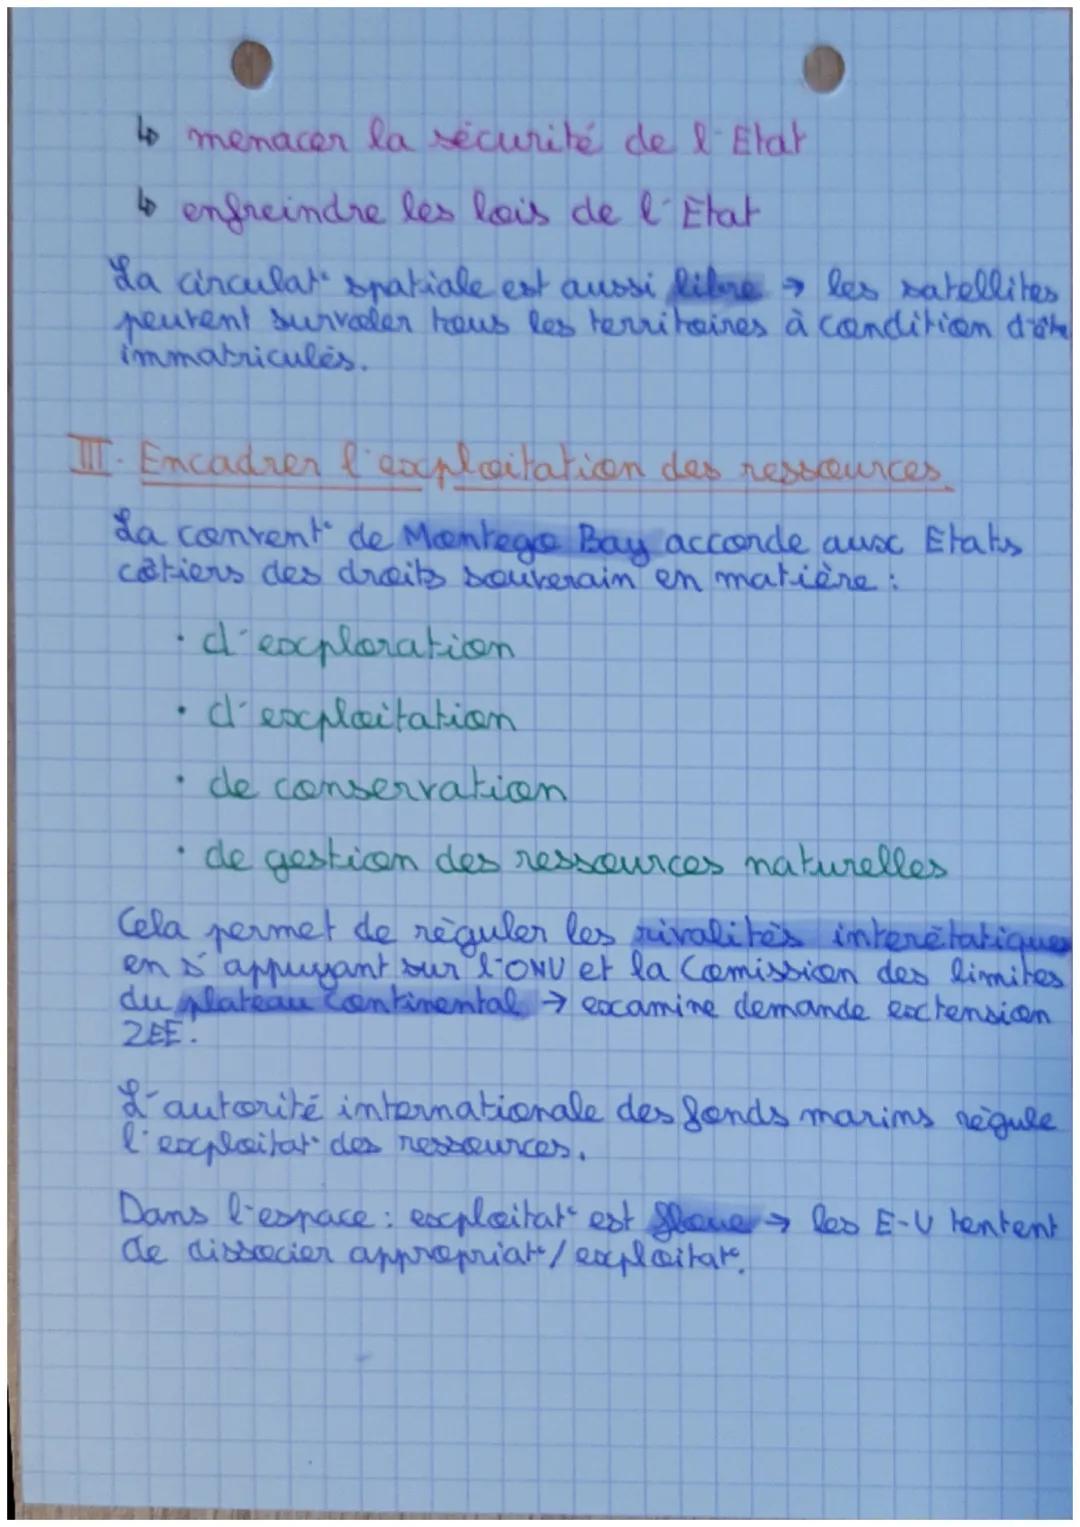 ↳ menacer la sécurité de l'Etat
↳ enfreindre les lois de l'Etat
La circulat° spatiale est aussi libre → les satellites
peuvent survoler tous les territoires à condition d'être
immatriculés.
III. Encadrer l'exploitation des ressources.
La convent° de Montego Bay accorde aux Etats
côtiers des droits souverain en matière :
• d'exploration
• d'exploitation
• de conservation
• de gestion des ressources naturelles
Cela permet de réguler les rivalités interétatiques
en s'appuyant sur l'ONU et la Comission des limites
du plateau Continental → examine demande extension
ZEE.
L'autorité internationale des fonds marins régule
l'exploitat° des ressources.
Dans l'espace : exploitat° est floue → les E-U tentent
de dissocier appropriat°/exploitat°.